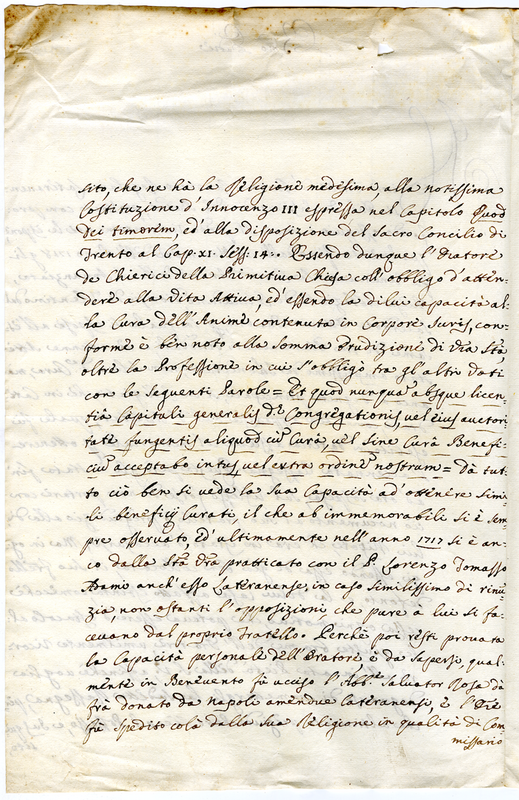 sito, che ne hà la Religione medesima, alla notissima
Costituzione d'Innocenzo III espressa nel Capitolo Quod
Dei timorem, ed'alla disposizione del Sacro Concilio di
Trento al Cap. XI. Sess. 14. Essendo dunque l'Oratore
de Chierici della Primitiva Chiesa coll'obbligo d'atten-
dere alla Vita Attiva, ed'essendo la dilui capacità al-
la Cura dell'Anime contenuta in Corpore Juris, con-
forme è ben noto alla Somma Erudizione di Vra Stà
oltre la Professione in cui s'obbligò tra gl'altri Voti
con le seguenti Parole = Et quod nunqua absque licen-
tia Capituli generalis de Congregationis, vel eius auctori
tate fungentis aliquod cu Cura, vel sine Cura Benefi-
ciu acceptabo intus vel extra ordine nostrum = dà tut-
to ciò ben si vede la sua Capacità ad'ottenere simi-
li beneficij Curati, il che ab immemorabili si è sem-
pre osservato, ed'ultimamente nell'anno 1717 si è an-
co dalla Stà Vra pratticato con il P. Lorenzo Tomasso
Adami anch'esso Lateranense, in caso similissimo di rinu-
zia, non ostanti l'opposizioni che pure à lui si fa-
cevano dal proprio fratello. Perche poi resti provata
la Capacità personale dell'Oratore è da sapersi, qual-
mente in Benevento fù ucciso l'Abbe Salvator Rosa da
frà Donato da Napoli amendue Lateranensi, e l'
fù spedito colà dalla sua Religione in qualità di Com-
missario